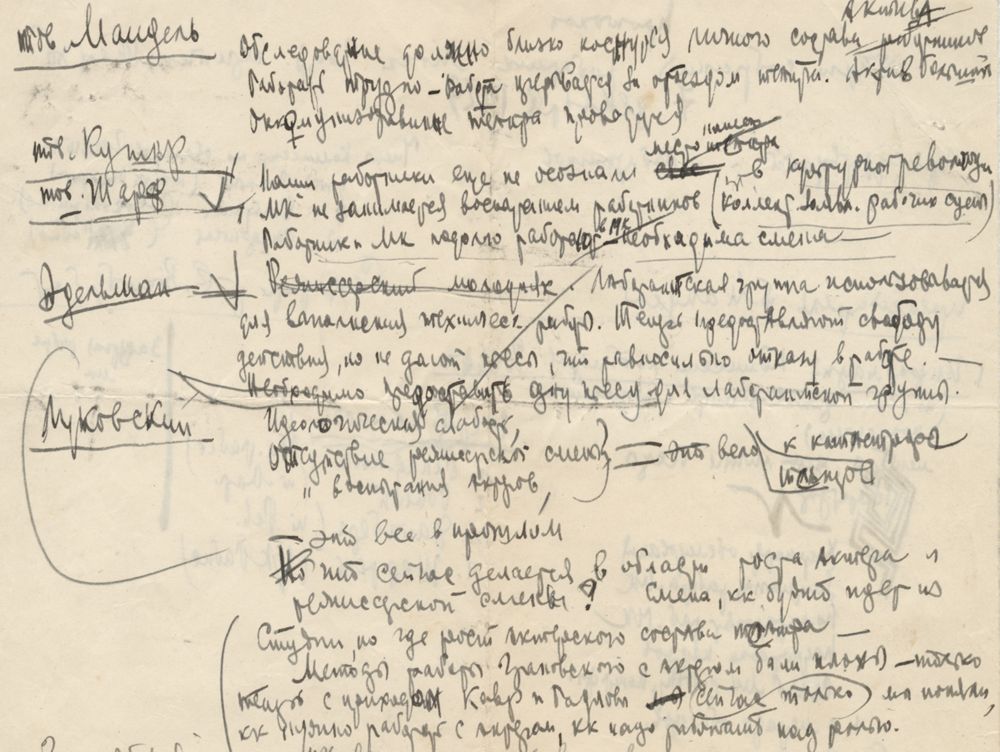 актива
тов. Мандель
Обследование должно близко коснуться личного состава работников
Работать трудно – работа прервется за отъездом театра. Актив
театра проводится
нашего
тов. Кушнир
место театра
тов. Шарф
Наши работники еще не осознали в культурной революции
МК не занимается воспитанием работников (коллект. рабочих сцены)
в МК
Работники МК подолгу работают – необходима смена –
Эдельман
Режиссерский молодняк. Лаборантская группа использовывается
для выполнения техническ работ. Теперь предоставляют свободу
действия, но не дают пьесы, что равносильно отказу в работе. –
Необходимо предоставить одну пьесу для лаборантской группы.
Лужовский
Идеологическая слабость,
Отсутствие режиссерской смены = Это вело к
" воспитания актеров,
– Это все в прошлом
Но что сейчас делается в области роста актера и
режиссерской смены? Смена, кк будто идет из
Студии, но где рост актерского состава театра –
Методы работы Грановского с актером были плохи – только
теперь с приходом и Радлова сейчас только мы поняли,
кк нужно работать с актером, кк надо работать над ролью.